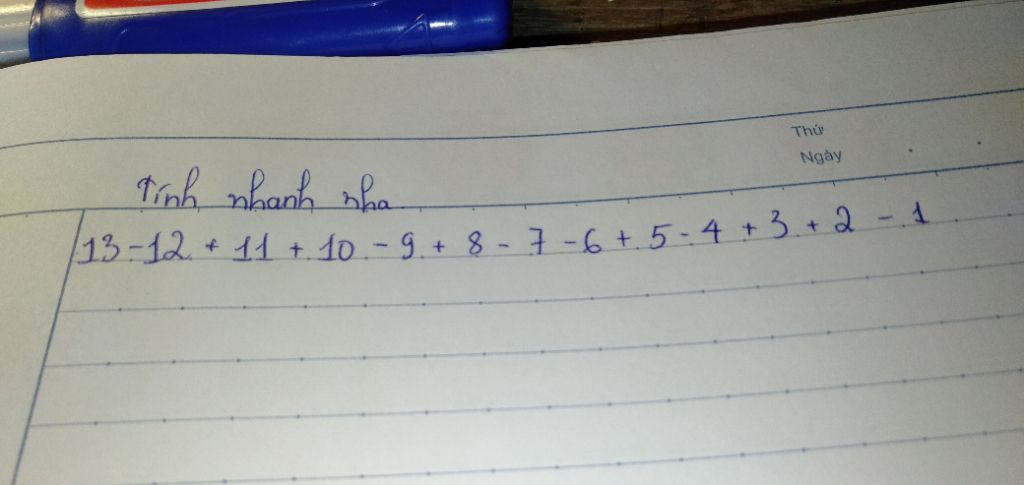 Thứ
Ngày
Tính nhanh nha
13 - 12 + 11 + 10 - 9 + 8 - 7 - 6 + 5 - 4 + 3 + 2 - 1